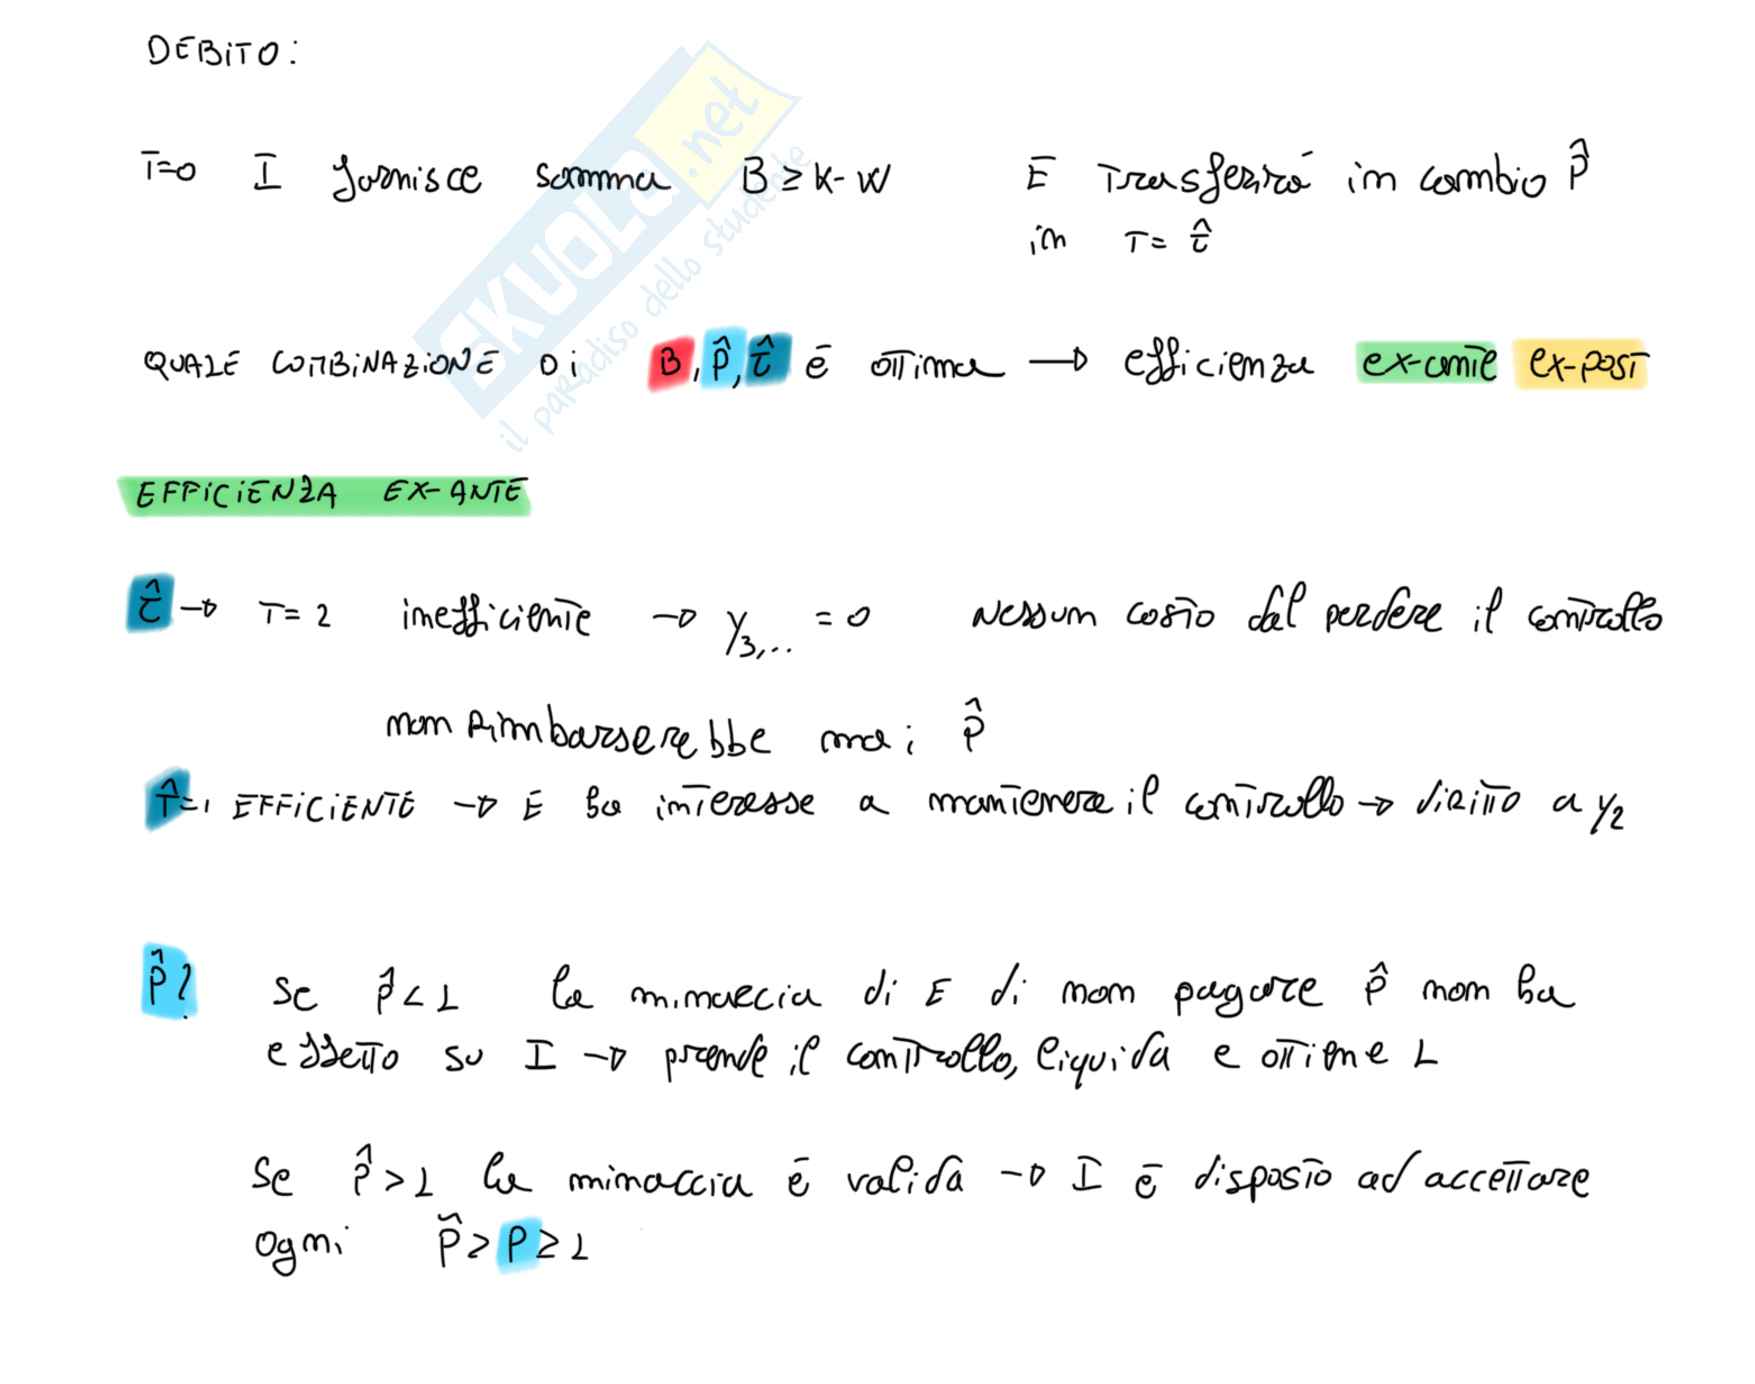 DEBITO:
T=0 I fornisce somma B ≥ K-W E trasferirà in cambio P̂
in T= τ̂
QUALE COMBINAZIONE DI B, P̂, τ̂ è ottima → efficienza ex-ante ex-post
EFFICIENZA EX-ANTE
τ̂ → T=2 inefficiente → y3,.. =0 Nessun costo dal perdere il controllo
non rimborserebbe mai P̂
T̂=1 EFFICIENTE → E ha interesse a mantenere il controllo → diritto a y2
P̂?
Se P̂<L la minaccia di E di non pagare P̂ non ha
effetto su I → prende il controllo, liquida e ottiene L
Se P̂>L la minaccia è valida → I è disposto ad accettare
ogni P̂ > P ≥ L
SKUOLA.net
il paradiso dello studente